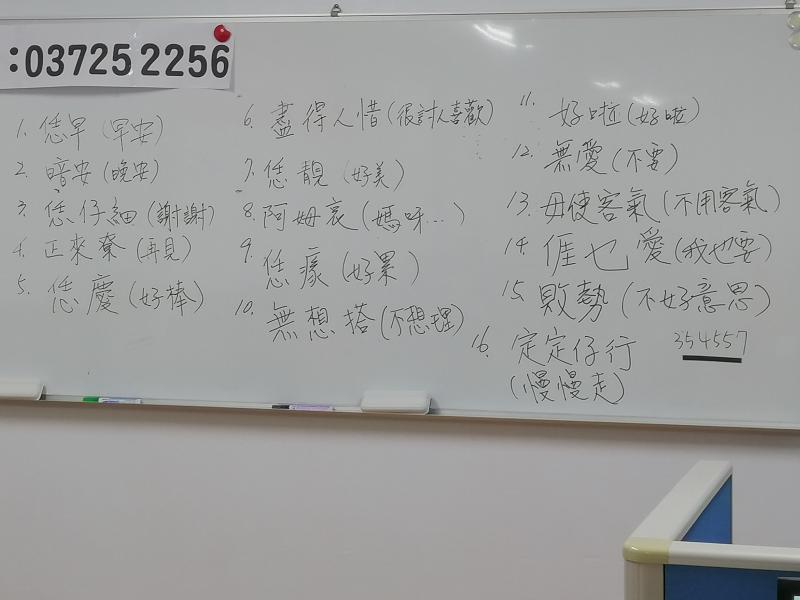 :037252256
1. 恁早 (早安)
2. 暗安 (晚安)
3. 恁仔細 (謝謝)
4. 正來寮 (再見)
5. 恁慶 (好棒)
6. 盡得人惜 (很討人喜歡)
7. 恁靚 (好美)
8. 阿姆哀 (媽呀...)
9. 恁瘃 (好累)
10. 無想搭 (不想理)
11. 好啦 (好啦)
12. 無愛 (不要)
13. 毋使客氣 (不用客氣)
14. 𠊎乜愛 (我也要)
15. 敗勢 (不好意思)
16. 定定仔行
(慢慢走)
354557